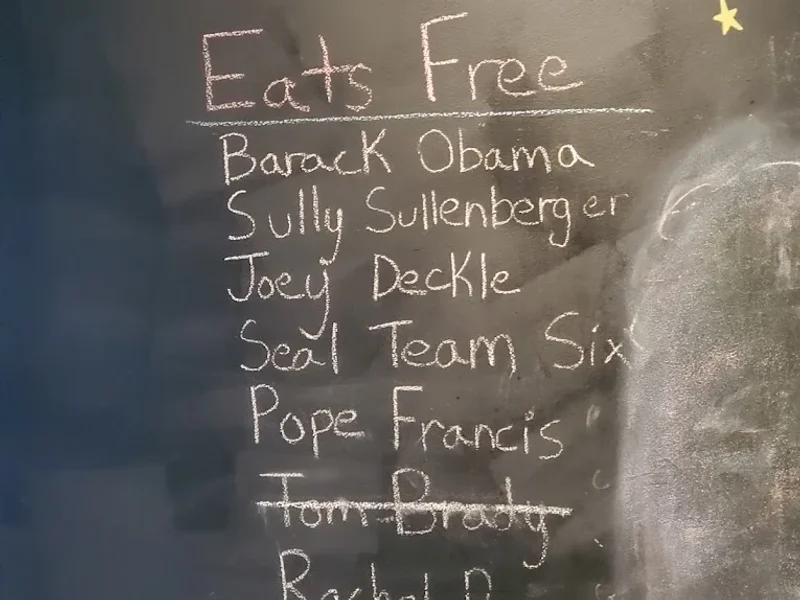 Eats Free
Barack Obama
Sully Sullenberger
Joey Deckle
Seal Team Six
Pope Francis
Tom Brady
Rachel D